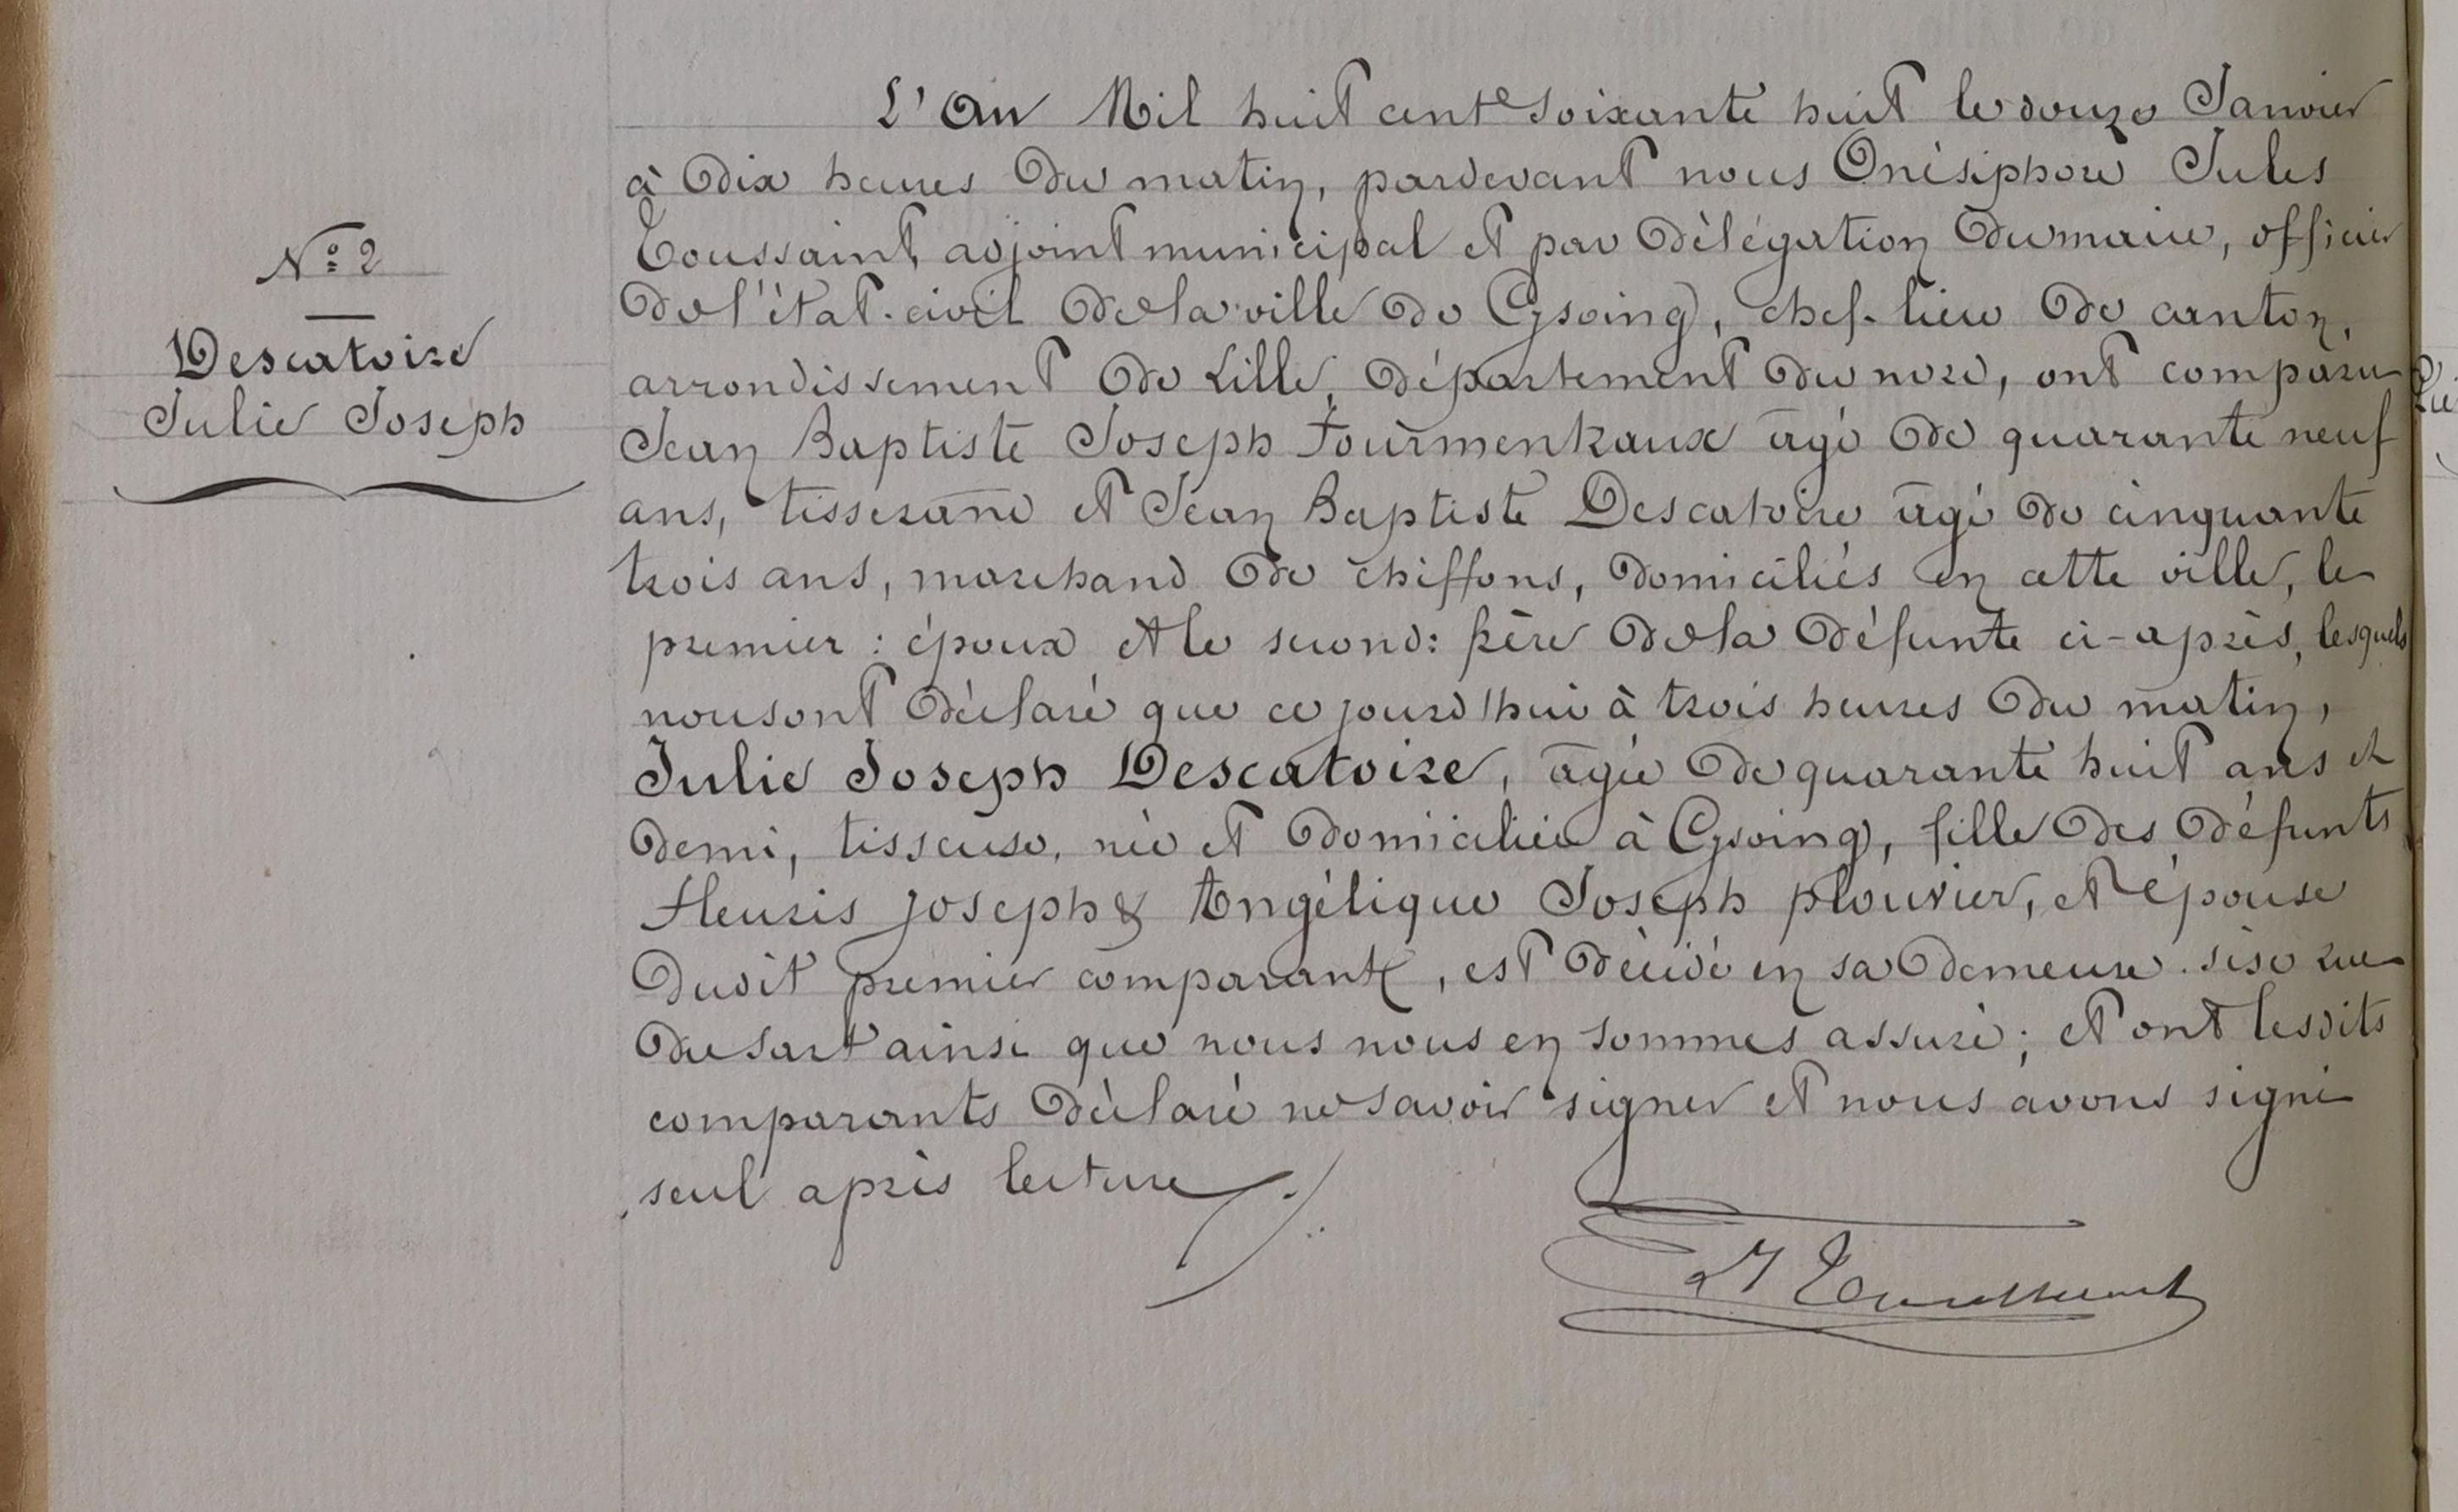 N° 2
Descatoire
Julie Joseph
L'An Mil huit cent soixante huit le douze Janvier
à dix heures du matin, pardevant nous Onésiphore Jules
Toussaint, adjoint municipal et par délégation du maire, officier
de l'état-civil de la ville de Cysoing, chef-lieu de canton,
arrondissement de Lille, département du nord, ont comparu
Jean Baptiste Joseph Fourmentraux âgé de quarante neuf
ans, tisserand et Jean Baptiste Descatoire âgé de cinquante
trois ans, marchand de chiffons, domiciliés en cette ville, le
premier : époux et le second : frère de la défunte ci-après, lesquels
nous ont déclaré que ce jourd'hui à trois heures du matin,
Julie Joseph Descatoire, âgée de quarante huit ans et
demi, tisseuse, née et domiciliée à Cysoing, fille des défunts
Fleuris Joseph & Angélique Joseph plouvier, et épouse
dudit premier comparant, est décédé en sa demeure sise rue
du sart ainsi que nous nous en sommes assuré ; et ont lesdits
comparants déclaré ne savoir signer et nous avons signé
seul après lecture ./.
Toussaint